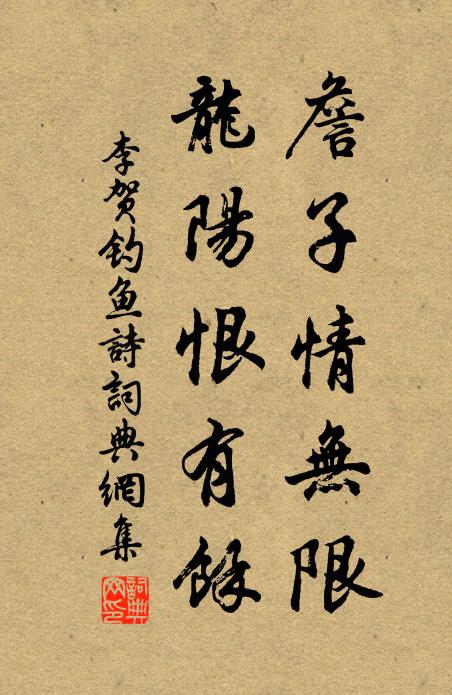 詹子情無限
龍陽恨有餘
李贺钓鱼詩詞典網集
詞典网印